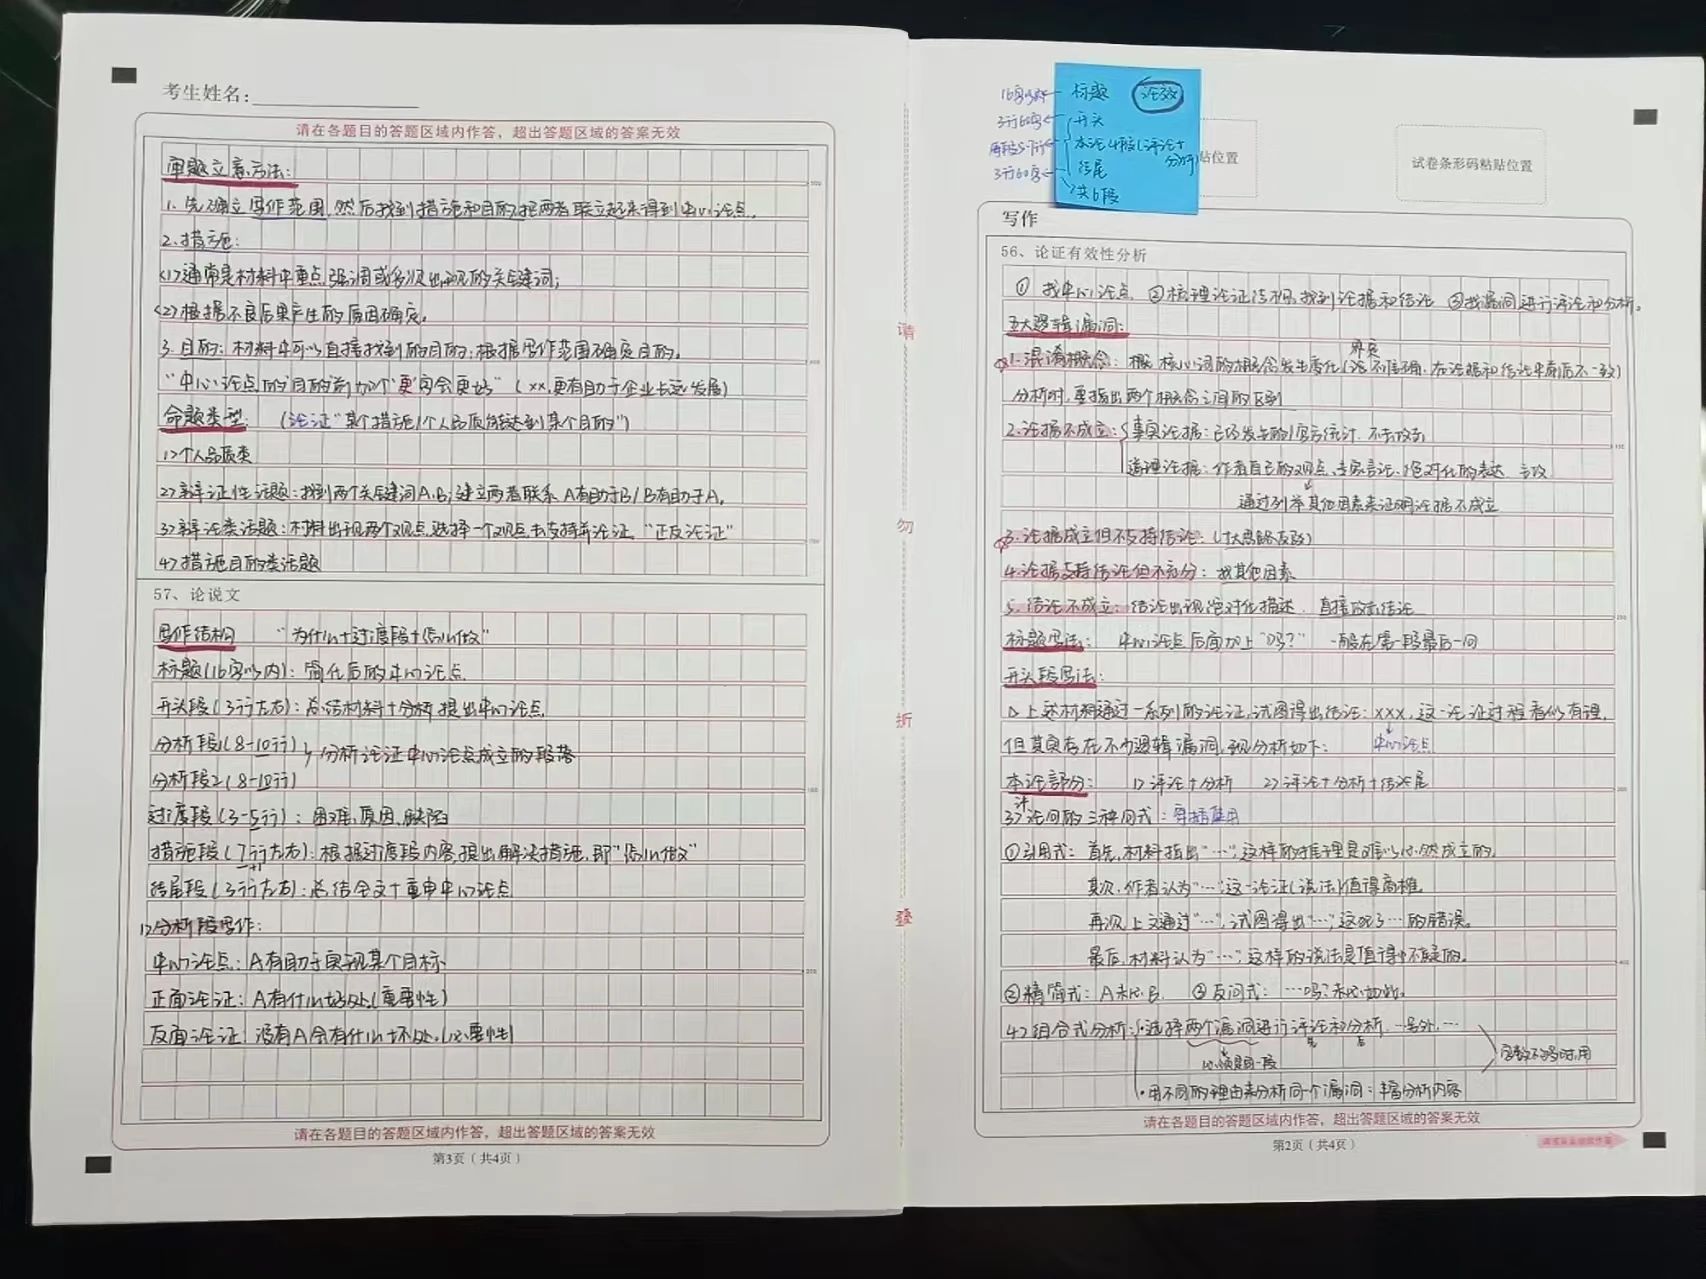 考生姓名:
请在各题目的答题区域内作答，超出答题区域的答案无效
审题立意方法:
1. 先确立写作范围，然后找到措施和目的，把两者联立起来得到中心论点。
2.措施:
(1)通常是材料中重点强调或多次出现的关键词;
(2)根据不良后果产生的原因确定。
3.目的:材料中可以直接找到的目的;根据写作范围确定目的。
"中心论点的目的前加个"更"字会更好"（xx,更有助于企业长远发展)
命题类型: (论证"某个措施/个人品质能达到某个目的")
1>个人品质类
2>辩证性话题:找到两个关键词A.B;建立两者联系 A有助于B/B有助于A。
3>辩论类话题:材料出现两个观点,选择一个观点去支持并论证 "正反论证"
4>措施目的类话题
57、论说文
写作结构 "为什么+过渡段+怎么做"
标题(16字以内): 简化后的中心论点
开头段(3行左右): 总结材料+分析 提出中心论点
分析段1(8-10行) 分析论证中心论点成立的段落
分析段2(8-10行)
过渡段(3-5行): 困难、原因、缺陷
措施段(7行左右):根据过渡段内容提出解决措施,即"怎么做"
结尾段(3行左右):总结全文+重申中心论点
1>分析段写作:
中心论点:A有助于实现某个目标
正面论证:A有什么好处(重要性)
反面论证:没有A会有什么坏处(必要性)
请在各题目的答题区域内作答，超出答题区域的答案无效
第3页（共4页）
请
勿
折
叠
标题 论效
3行60字 开头
本论4段(评论+
分析)
3行60字 结尾
共6段
粘位置
试卷条形码粘贴位置
写作
56、论证有效性分析
①找中心论点 ②梳理论证结构,找到论据和结论 ③找漏洞进行评论和分析。
五大逻辑漏洞:
界定
1.混淆概念: 核心词的概念发生变化(该不准确、在论据和结论中前后不一致)
分析时,要指出两个概念之间的区别
2.论据不成立: 事实论据:已经发生的/官方统计 不去攻击
道理论据:作者自己的观点、专家言论、绝对化的表达 主攻
通过列举其他因素来证明论据不成立
3.论据成立但不支持结论:
4.论据支持结论但不充分: 找其他因素
5.结论不成立: 结论出现绝对化描述、直接攻击结论
标题写法: 中心论点后面加上"吗?" 一般在第一段最后一问
开头段写法:
上述材料通过一系列的论证,试图得出结论:xxx,这一论证过程看似有理,
但其实存在不少逻辑漏洞,现分析如下: 中心论点
本论部分: 1>评论+分析 2>评论+分析+结论尾
3>评论句的三种句式:穿插使用
①引用式: 首先,材料指出"…",这样的推理是难以必然成立的。
其次,作者认为"…",这一论证(说法)值得商榷。
再次,上文通过"…",试图得出"…",这犯了…的错误。
最后,材料认为"…",这样的说法是值得怀疑的。
②精简式: A未必B. ③反问式: …吗?未必如此。
4>组合式分析: ·选择两个漏洞进行评论和分析,…另外,…
必须是同一段 字数不够时用
·用不同的理由来分析同一个漏洞:丰富分析内容
请在各题目的答题区域内作答，超出答题区域的答案无效
第2页（共4页）